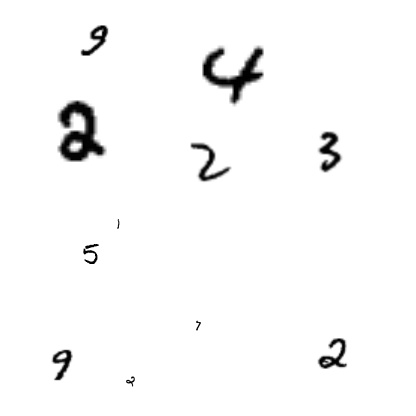 9 4
2 2 3
1
5
7
9 2 2